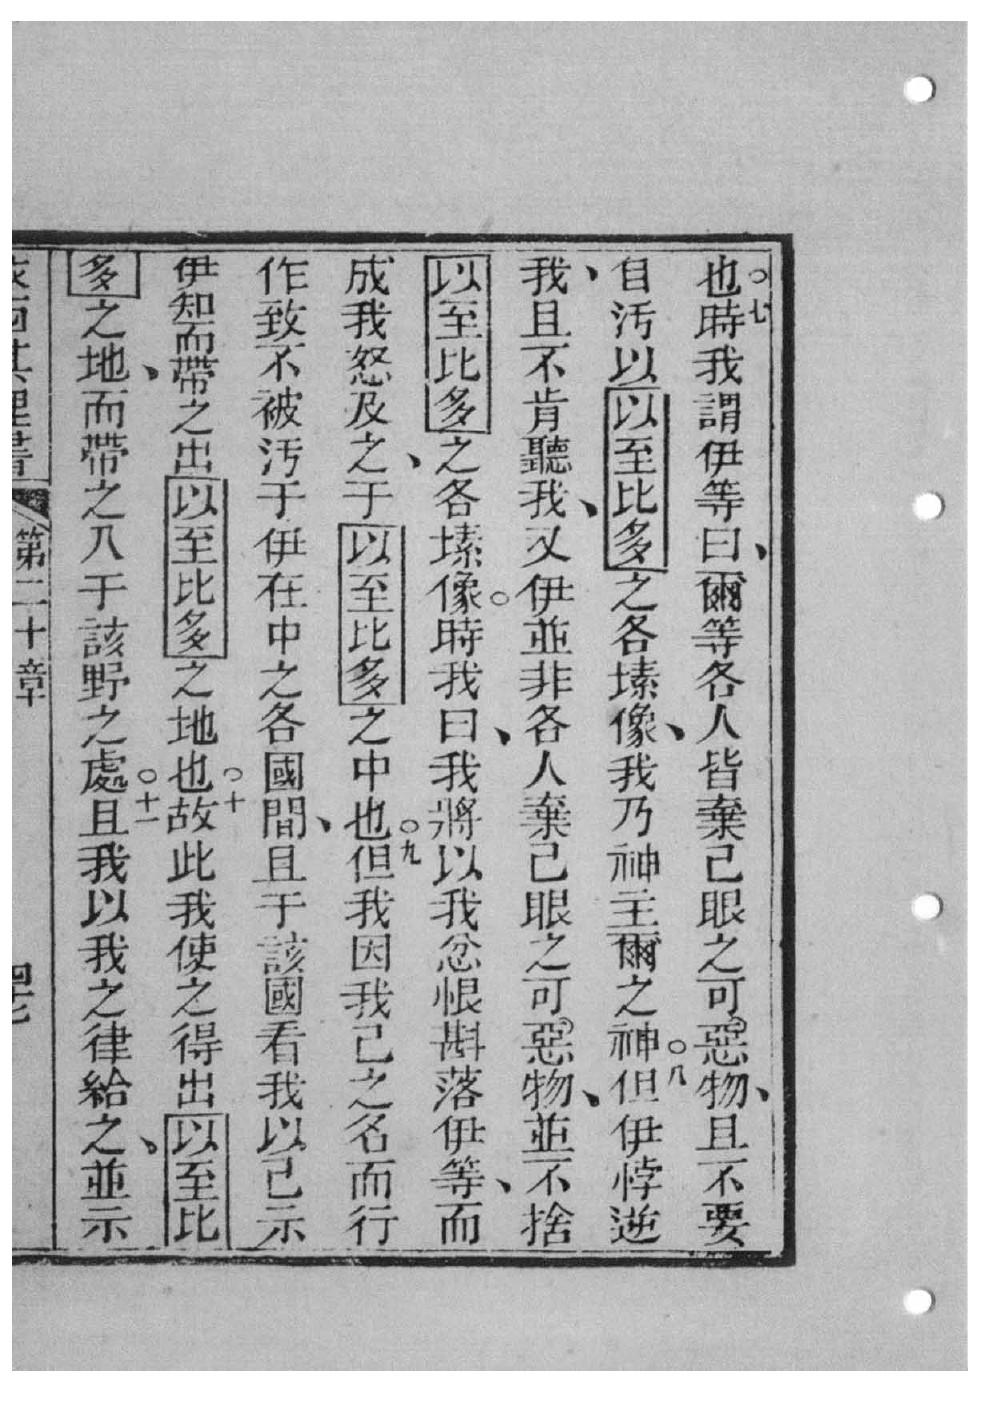 也○七時我謂伊等曰、爾等各人皆棄己眼之可惡物、且不要
自汚以以至比多之各塐像、我乃神主爾之神○八但伊悖逆
我、且不肯聽我、又伊並非各人棄己眼之可惡物、並不捨
以至比多之各塐像○時我曰、我將以我忿恨斟落伊等、而
成我怒及之、于以至比多之中也○九但我因我己之名而行
作致不被汚于伊在中之各國間、且于該國看我以己示
伊知而帶之出以至比多之地也○十故此我使之得出以至比
多之地、而帶之入于該野之處○十一且我以我之律給之、並示
第二十章